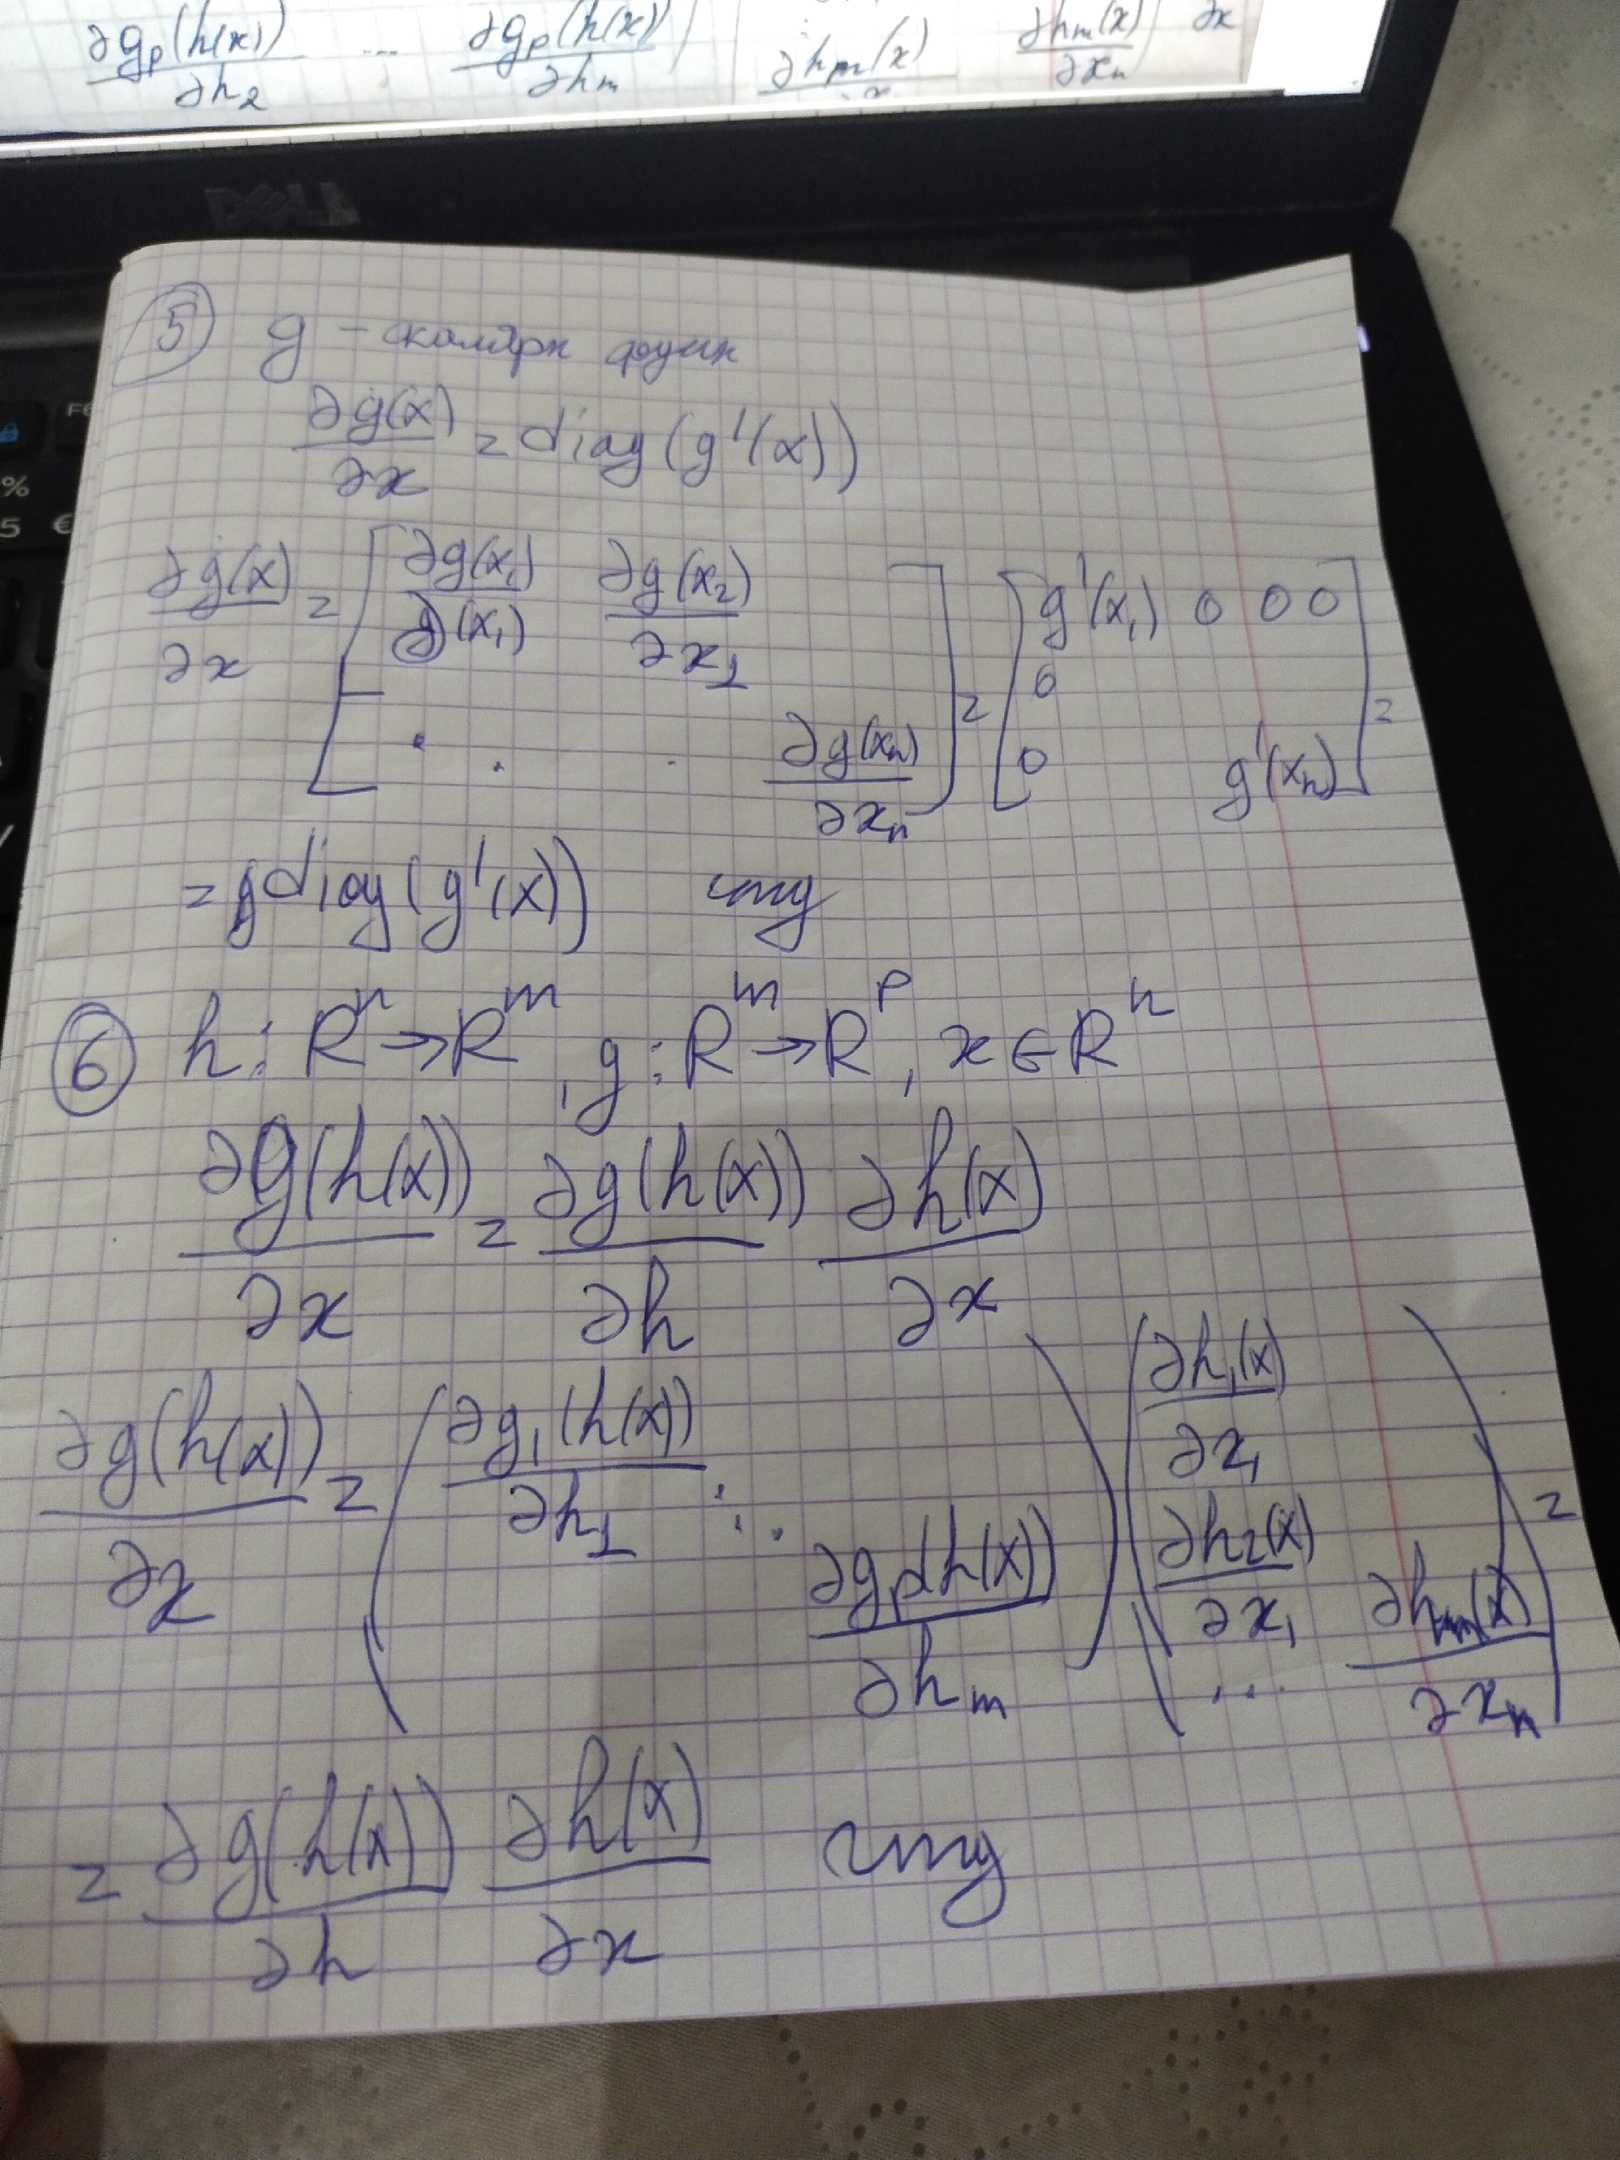 ∂gₚ(h(x))/∂h₂ ... ∂gₚ(h(x))/∂hₘ ∂hₘ(x) ∂hₘ(x)/∂xₙ ∂x
DELL
5 g - скалярн функ
∂g(x)/∂x = diag(g'(x))
∂g(x)/∂x = [∂g(x₁)/∂(x₁) ∂g(x₂)/∂x₁ . . . ∂g(xₙ)/∂xₙ] = [g'(x₁) 0 0 0 0 0 g'(xₙ)] =
= diag(g'(x)) чтд
6 h: Rⁿ → Rᵐ, g: Rᵐ → Rᵖ, x ∈ Rⁿ
∂g(h(x))/∂x = ∂g(h(x))/∂h ∂h(x)/∂x
∂g(h(x))/∂x = (∂g₁(h(x))/∂h₁ ... ∂gₚ(h(x))/∂hₘ) (∂h₁(x)/∂x₁ ∂h₂(x)/∂x₁ ... ∂hₘ(x)/∂xₙ) =
= ∂g(h(x))/∂h ∂h(x)/∂x чтд